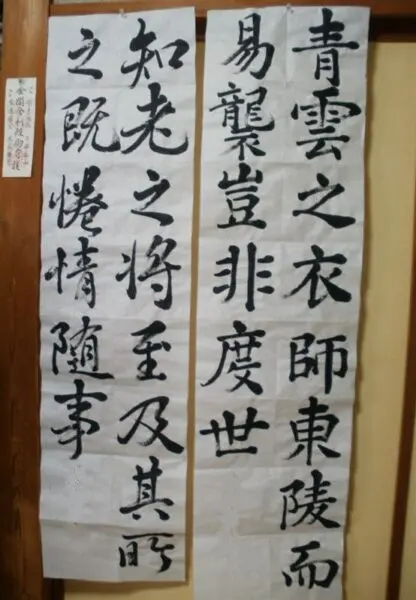 青雲之衣師東陵而
易襲豈非度世
知老之将至及其所
之既惓情随事